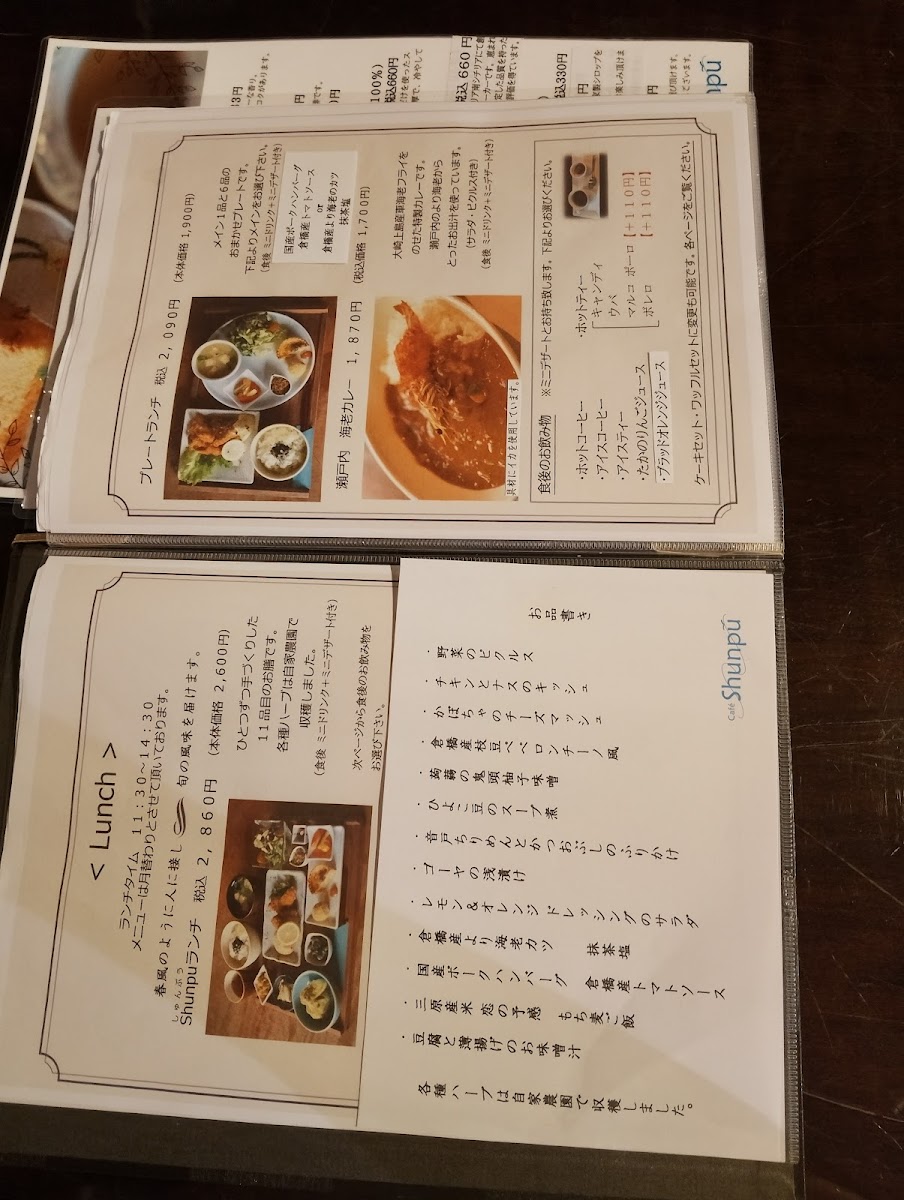 < Lunch >
ランチタイム 11:30~14:30
メニューは月替わりとさせて頂いております。
春風のように人に接し 旬の風味を届けます。
しゅんぷう
Shunpuランチ 税込 2,860円 (本体価格 2,600円)
ひとつずつ手づくりした
11品目のお膳です。
各種ハーブは自家農園で
収穫しました。
(食後 ミニドリンク+ミニデザート付き)
次ページから食後のお飲み物を
お選び下さい。
お品書き
・野菜のピクルス
・チキンとナスのキッシュ
・かぼちゃのチーズマッシュ
・倉橋産枝豆ペペロンチーノ風
・蒟蒻の鬼頭柚子味噌
・ひよこ豆のスープ煮
・音戸ちりめんとかつおぶしのふりかけ
・ゴーヤの浅漬け
・レモン&オレンジドレッシングのサラダ
・倉橋産より海老カツ 抹茶塩
・国産ポークハンバーグ 倉橋産トマトソース
・三原産米 恋の予感 もち麦ご飯
・豆腐と薄揚げのお味噌汁
各種ハーブは自家農園で収穫しました。
Café Shunpú
プレートランチ 税込 2,090円 (本体価格 1,900円)
メイン1品と6品の
おまかせプレートです。
下記よりメインをお選び下さい。
(食後 ミニドリンク+ミニデザート付き)
国産ポークハンバーグ
倉橋産トマトソース
or
倉橋産より海老のカツ
抹茶塩
瀬戸内 海老カレー 1,870円 (税込価格 1,700円)
大崎上島産車海老フライを
のせた特製カレーです。
瀬戸内のより海老から
とったお出汁を使っています。
(サラダ・ピクルス付き)
(食後 ミニドリンク+ミニデザート付き)
具材にイカを使用しています。
食後のお飲み物 ※ミニデザートとお持ち致します。下記よりお選びください。
・ホットコーヒー
・アイスコーヒー
・アイスティー
・たかのりんごジュース
・ブラッドオレンジジュース
・ホットティー
キャンディ
ウバ
マルコ ポーロ【+110円】
ボレロ 【+110円】
ケーキセット・ワッフルセットに変更も可能です。各ページをご覧ください。
コクがあります。
100%)
税込660円
税込 660円
税込330円
npú